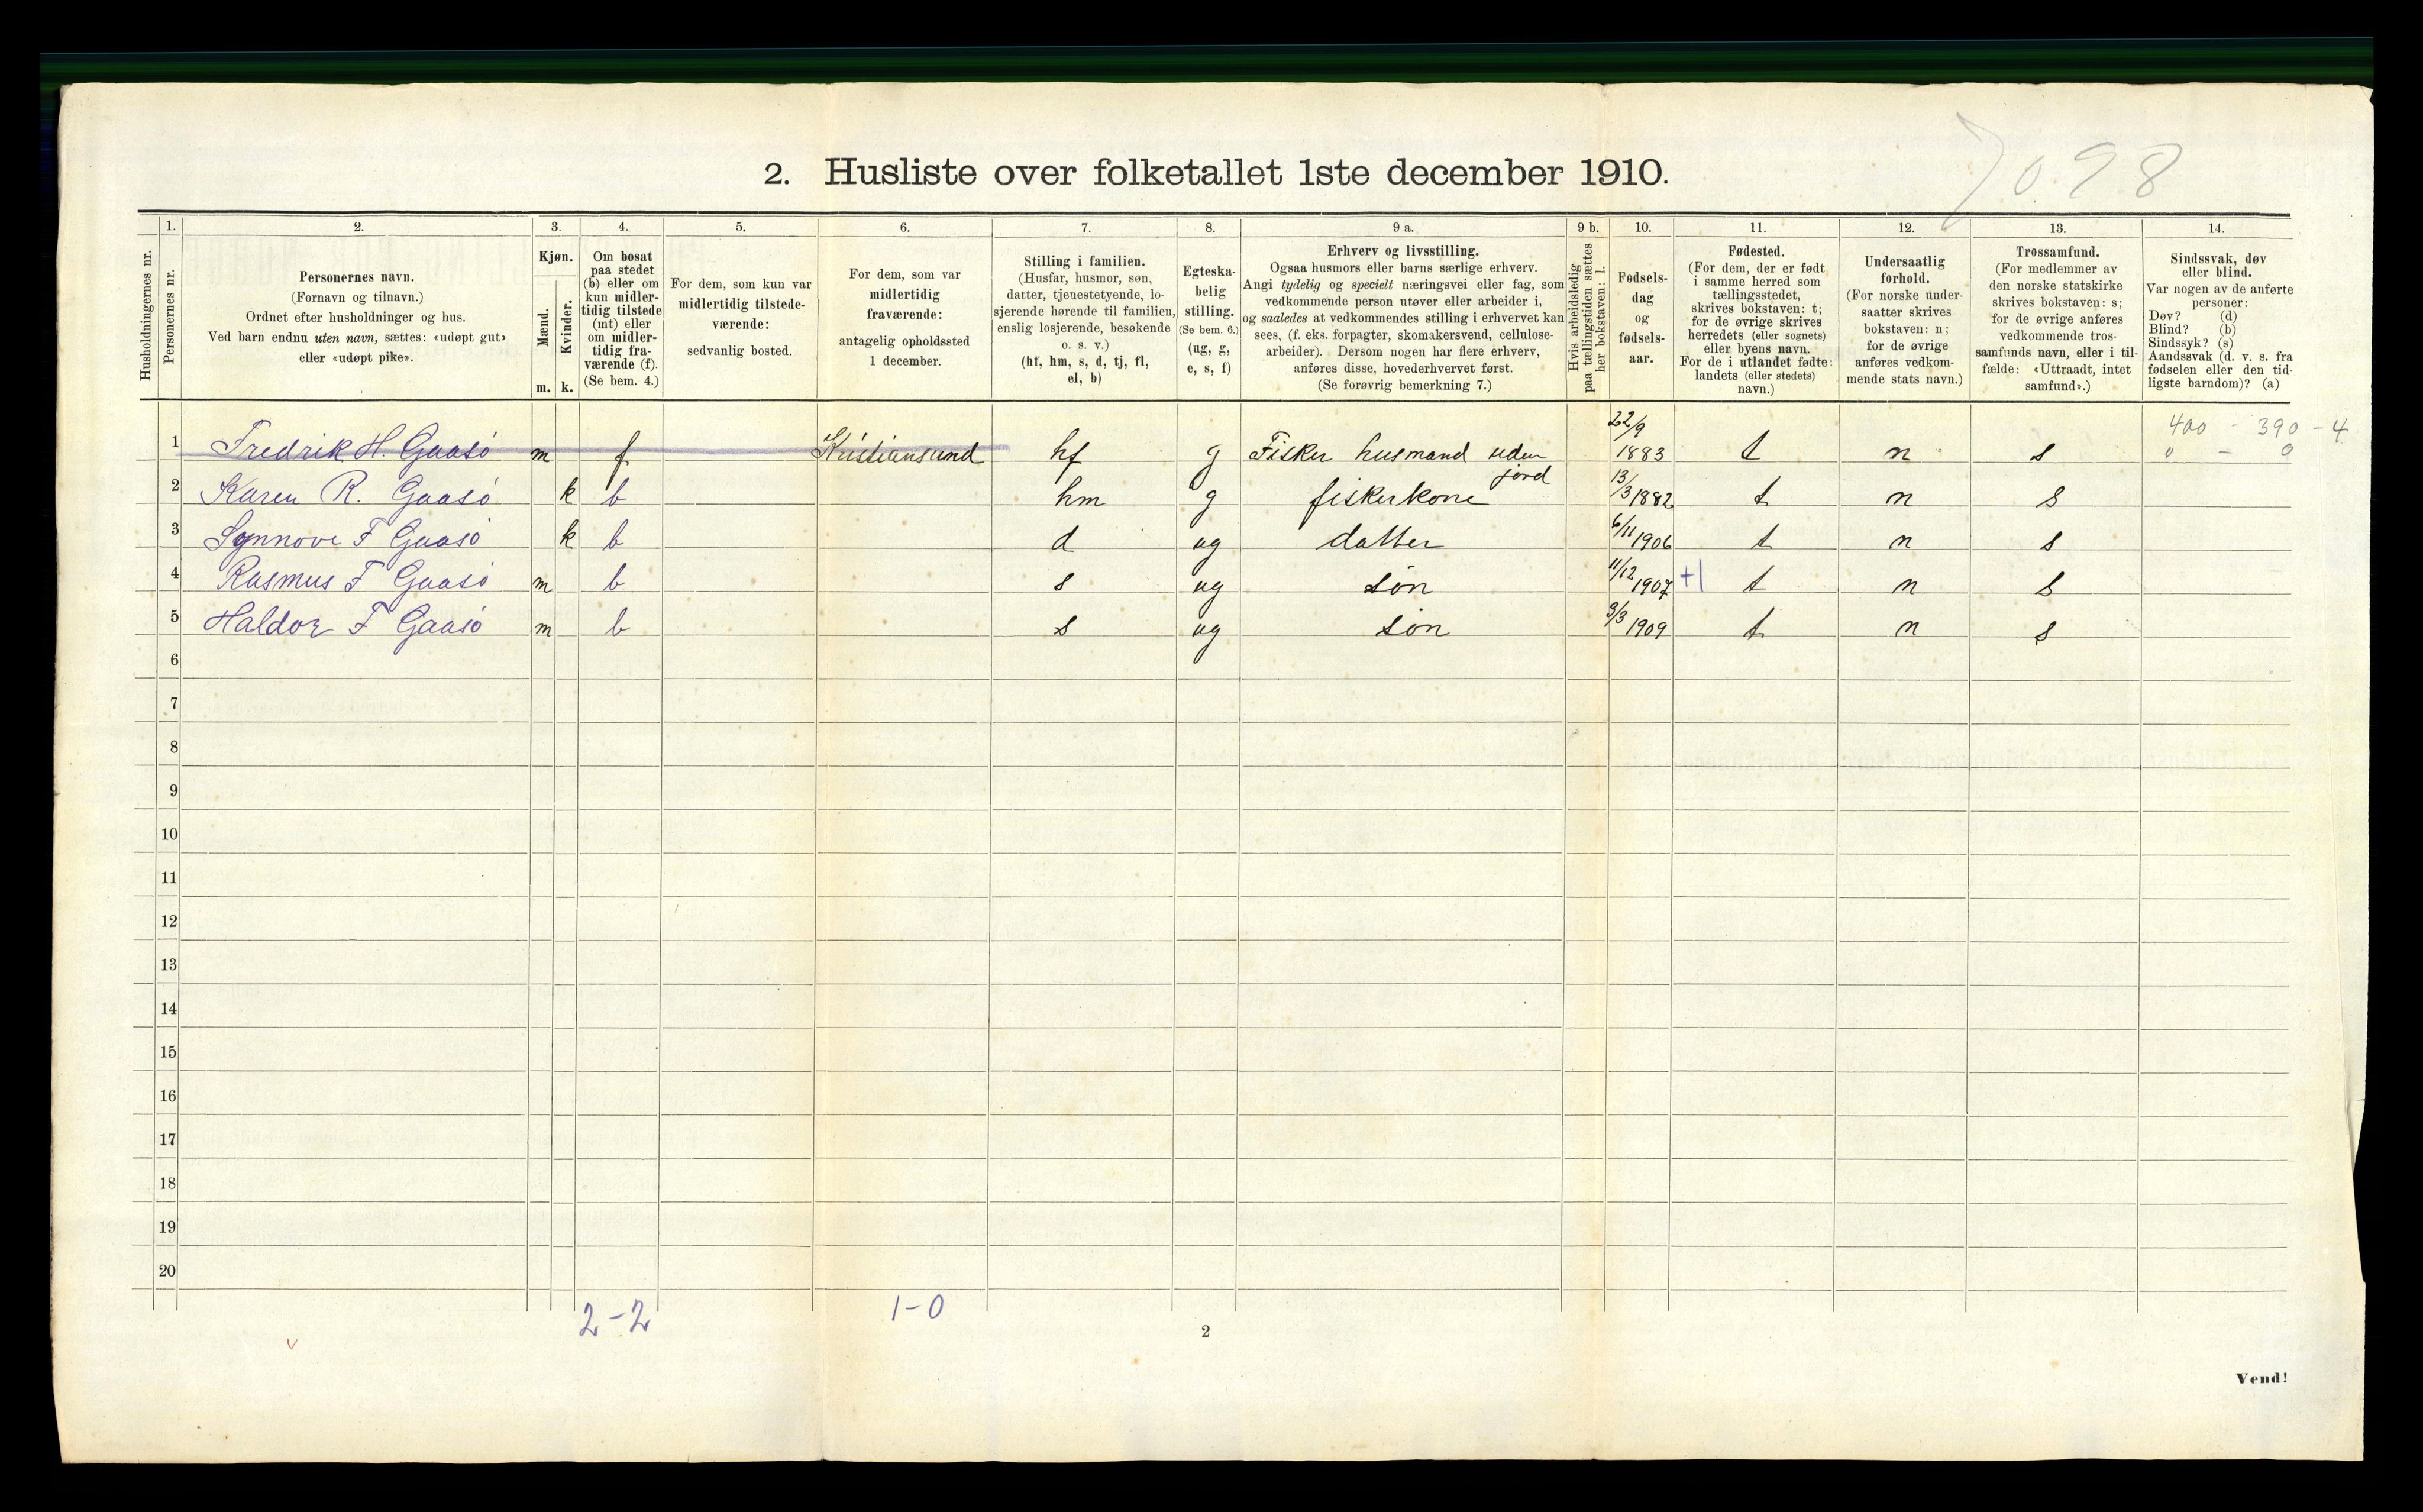 2. Husliste over folketallet 1ste december 1910.
7098
Husholdningernes nr.
1.
Personernes nr.
2.
Personernes navn.
(Fornavn og tilnavn.)
Ordnet efter husholdninger og hus.
Ved barn endnu uten navn, sættes: «udøpt gut»
eller «udøpt pike».
3.
Kjøn.
Mænd.
Kvinder.
m. k.
4.
Om bosat
paa stedet
(b) eller om
kun midler-
tidig tilstede
(mt) eller
om midler-
tidig fra-
værende (f).
(Se bem. 4.)
5.
For dem, som kun var
midlertidig tilstede-
værende:
sedvanlig bosted.
6.
For dem, som var
midlertidig
fraværende:
antagelig opholdssted
1 december.
7.
Stilling i familien.
(Husfar, husmor, søn,
datter, tjenestetyende, lo-
sjerende hørende til familien,
enslig losjerende, besøkende
o. s. v.)
(hf, hm, s, d, tj, fl,
el, b)
8.
Egteska-
belig
stilling.
(Se bem. 6.)
(ug, g,
e, s, f)
9 a.
Erhverv og livsstilling.
Ogsaa husmors eller barns særlige erhverv.
Angi tydelig og specielt næringsvei eller fag, som
vedkommende person utøver eller arbeider i,
og saaledes at vedkommendes stilling i erhvervet kan
sees, (f. eks. forpagter, skomakersvend, cellulose-
arbeider). Dersom nogen har flere erhverv,
anføres disse, hovederhvervet først.
(Se forøvrig bemerkning 7.)
9 b.
Hvis arbeidsledig
paa tællingstiden sættes
her bokstaven: l.
10.
Fødsels-
dag
og
fødsels-
aar.
11.
Fødested.
(For dem, der er født
i samme herred som
tællingsstedet,
skrives bokstaven: t;
for de øvrige skrives
herredets (eller sognets)
eller byens navn.
For de i utlandet fødte:
landets (eller stedets)
navn.)
12.
Undersaatlig
forhold.
(For norske under-
saatter skrives
bokstaven: n;
for de øvrige
anføres vedkom-
mende stats navn.)
13.
Trossamfund.
(For medlemmer av
den norske statskirke
skrives bokstaven: s;
for de øvrige anføres
vedkommende tros-
samfunds navn, eller i til-
fælde: «Uttraadt, intet
samfund».)
14.
Sindssvak, døv
eller blind.
Var nogen av de anførte
personer:
Døv? (d)
Blind? (b)
Sindssyk? (s)
Aandssvak (d. v. s. fra
fødselen eller den tid-
ligste barndom)? (a)
400 - 390 - 4
0 - 0
1 Fredrik H. Gaasø m f Kristiansund hf g Fisker husmand uden jord 22/9 1883 t n s
2 Karen R. Gaasø k b hm g fiskerkone 13/3 1882 t n s
3 Synnove F Gaasø k b d ug datter 6/11 1906 t n s
4 Rasmus F Gaasø m b s ug søn 11/12 1907 +1 t n s
5 Haldor F Gaasø m b s ug søn 9/3 1909 t n s
6
7
8
9
10
11
12
13
14
15
16
17
18
19
20
2-2 1-0
v
2
Vend!